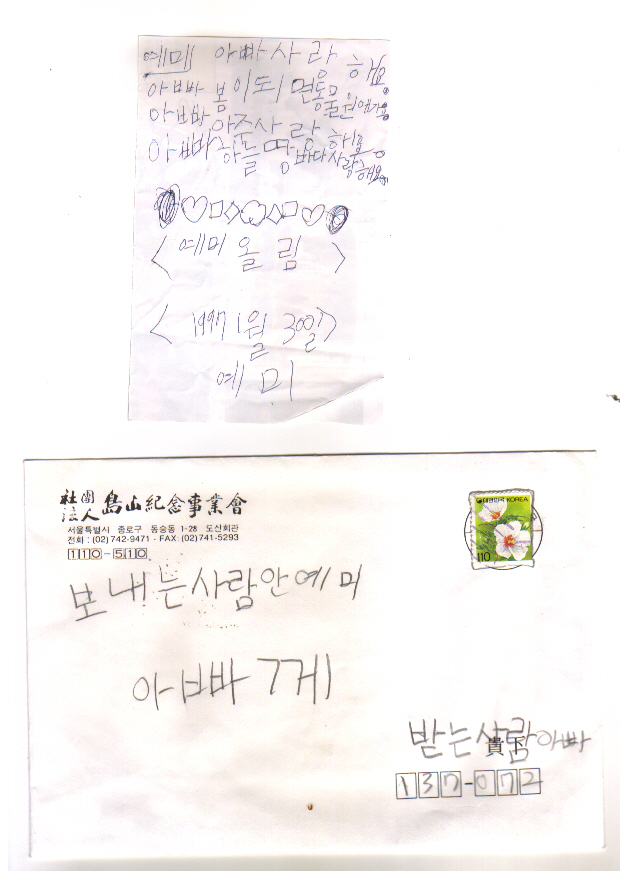 예미 아빠 사랑 해요
아빠 봄 이 도 l 면 동물원 에 가용
아빠 아주 사랑 해요
아빠 하늘 땅 바다 사랑해요
<예미 올림>
<1997 1월 30일>
예미
社團
法人 島山紀念事業會
서울특별시 종로구 동숭동 1-28 도산회관
전화 : (02) 742-9471 · FAX : (02) 741-5293
110-510
대한민국 KOREA
110
보내는사람안예미
아빠 게
받는사람아빠
貴下
137-072